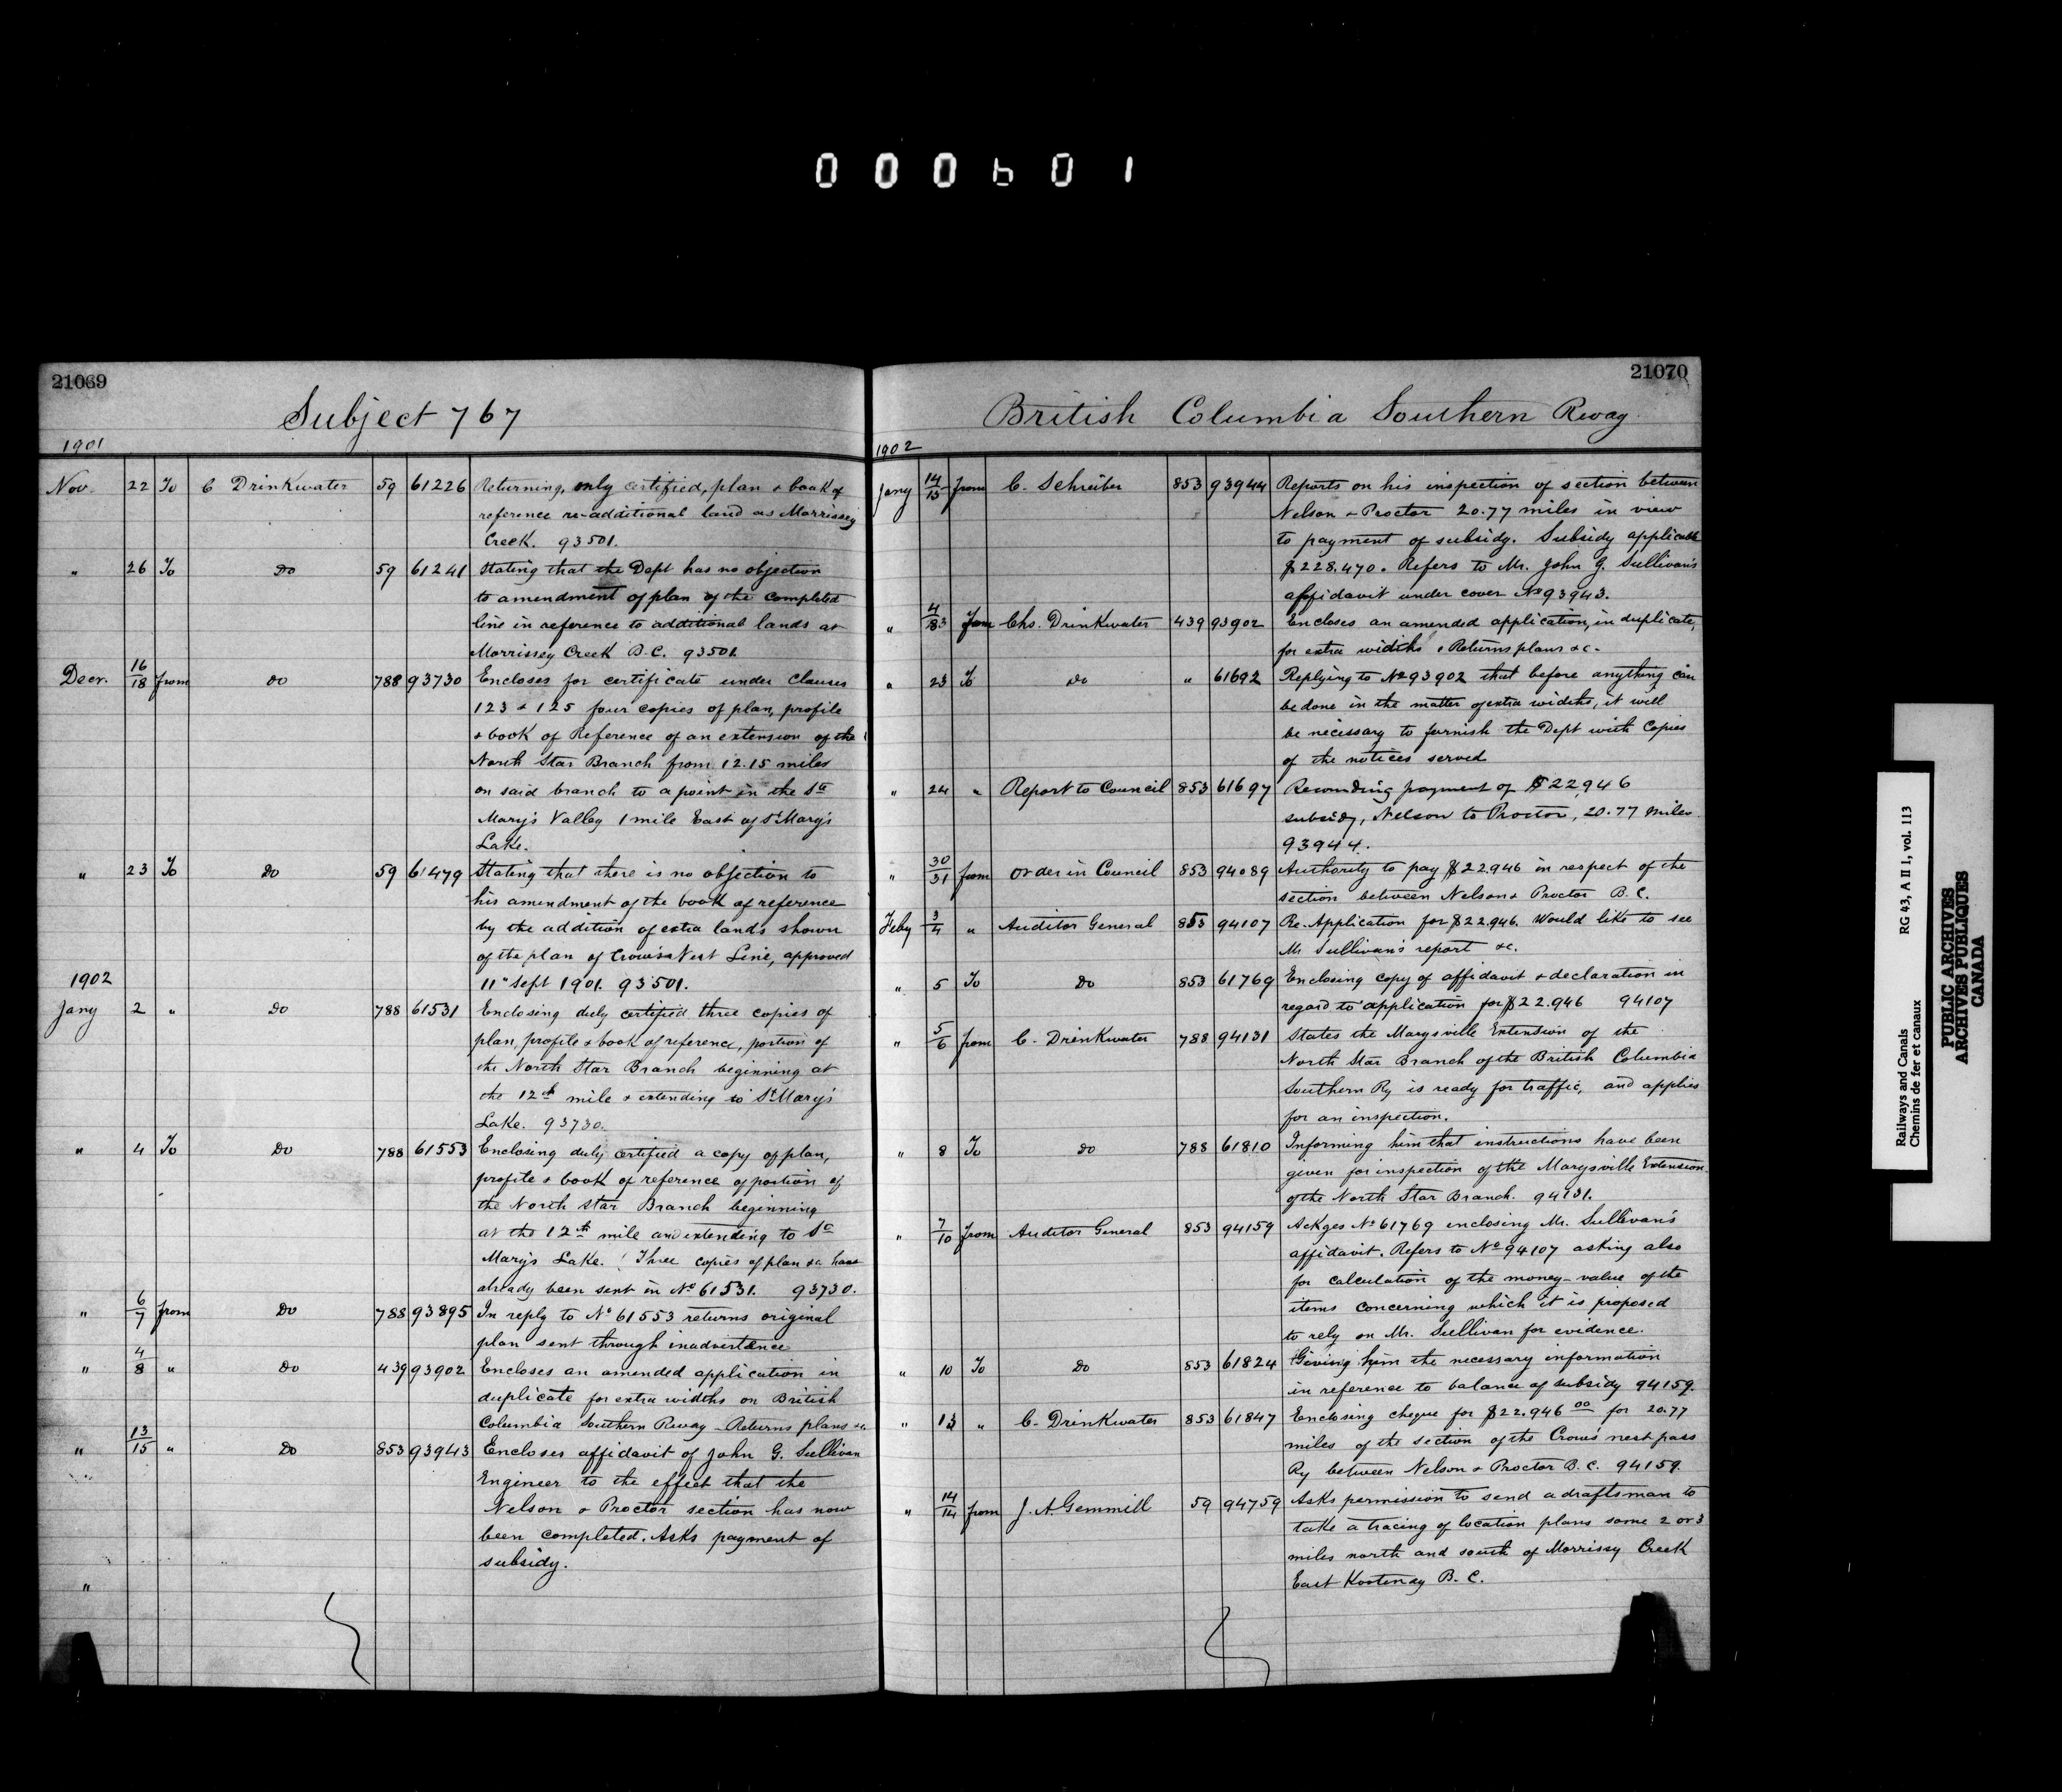 000601
21069
Subject 767
1901
Nov. 22 To C Drinkwater 59 61226 Returning, only certified, plan & book of
reference re-additional land as Morrissey
Creek. 93501.
" 26 To Do 59 61241 Stating that the Dept has no objection
to amendment of plan of the completed
line in reference to additional lands at
Morrissey Creek B.C. 93501.
Decr. 16/18 from Do 788 93730 Encloses for certificate under Clauses
123 & 125 four copies of plan, profile
& book of Reference of an extension of the
North Star Branch from 12.15 miles
on said branch to a point in the St
Mary's Valley 1 mile East of St Mary's
Lake.
" 23 To Do 59 61479 Stating that there is no objection to
his amendment of the book of reference
by the addition of extra lands shown
of the plan of Crows Nest Line, approved
11" Sept 1901. 93501.
1902
Jany 2 " Do 788 61531 Enclosing duly certified three copies of
plan, profile & book of reference, portion of
the North Star Branch beginning at
the 12th mile & extending to St Mary's
Lake. 93730.
" 4 To Do 788 61553 Enclosing duly certified a copy of plan,
profile & book of reference of portion of
the North Star Branch beginning
at the 12th mile and extending to St
Marys Lake. Three copies of plan &c have
already been sent in No 61531. 93730.
" 6/7 from Do 788 93895 In reply to No 61553 returns original
plan sent through inadvertence
" 4/8 " Do 439 93902 Encloses an amended application in
duplicate for extra widths on British
Columbia Southern Rway - Returns plans &c
" 13/15 " Do 853 93943 Encloses affidavit of John G. Sullivan
Engineer to the effect that the
Nelson & Proctor section has now
been completed. Asks payment of
subsidy.
"
21070
British Columbia Southern Rway
1902
Jany 14/15 from C. Schreiber 853 93944 Reports on his inspection of section between
Nelson & Proctor 20.77 miles in view
to payment of subsidy. Subsidy applicable
$228.470. Refers to Mr. John G. Sullivan's
affidavit under cover No 93943.
" from Chs. Drinkwater 439 93902 Encloses an amended application, in duplicate,
for extra widths & Returns plans &c.
" 23 To Do " 61692 Replying to No 93902 that before anything can
be done in the matter of extra widths, it will
be necessary to furnish the Dept with Copies
of the notices served
" 24 " Report to Council 853 61697 payment of $22,946
subsidy, Nelson to Proctor, 20.77 miles.
93944.
" 30/31 from Order in Council 853 94089 Authority to pay $22.946 in respect of the
section between Nelson & Proctor B.C.
Feby 3/4 " Auditor General 853 94107 Re-Application for $22.946. Would like to see
Mr Sullivan's report &c.
" 5 To Do 853 61769 Enclosing copy of affidavit & declaration in
regard to application for $22.946 94107
" 5/6 from C. Drinkwater 788 94131 States the Marysville Extension of the
North Star Branch of the British Columbia
Southern Ry is ready for traffic, and applies
for an inspection.
" 8 To Do 788 61810 Informing him that instructions have been
given for inspection of the Marysville Extension
of the North Star Branch. 94131.
" 7/10 from Auditor General 853 94159 Ackges No 61769 enclosing Mr. Sullivan's
affidavit. Refers to No 94107 asking also
for calculation of the money-value of the
items concerning which it is proposed
to rely on Mr. Sullivan for evidence.
" 10 To Do 853 61824 Giving him the necessary information
in reference to balance of subsidy 94159.
" 13 " C. Drinkwater 853 61847 Enclosing cheque for $22.946 00 for 20.77
miles of the section of the Crow's nest pass
Ry between Nelson & Proctor B.C. 94159.
" 14/14 from J. A. Gemmill 59 94759 Asks permission to send a draftsman to
take a tracing of location plans some 2 or 3
miles north and south of Morrissy Creek
East Kootenay B.C.
Railways and Canals RG 43, A II 1, vol. 113
Chemins de fer et canaux
PUBLIC ARCHIVES
ARCHIVES PUBLIQUES
CANADA